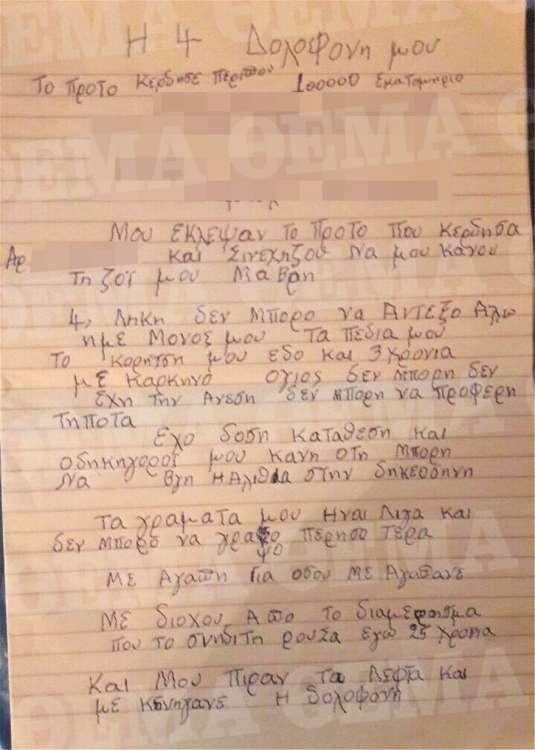 Η 4 Δολοφονη μου
Το προτο Κερδησε περιπου 100000 Εκατομηριο
Μου Εκλεψαν το προτο που κερδησα
Αρ και Σινεχηζου να μου κανου
τη ζοϊ μου Μαβρη
4, Ληκη δεν Μπορο να Αντεξο Αλω
ημε Μονος μου Τα πεδια μου
Το κορητση μου εδο και 3 χρονια
με καρκηνο ογιος δεν Μπορη δεν
εχη την Ανεση δεν Μπορη να προφερη
τηποτα
Εχο δοση καταθεση και
οδηκηγοροϊ μου κανη οτη Μπορη
Να Βγη Η Αληθια στην δηκεοσηνη
Τα γραματα μου Ηναι Λιγα και
δεν Μπορο να γραψο περησο τερα
Με Αγαπη για οσου με Αγαπανε
Με διοχου Απο το διαμερησμα
που το συνδιτη ρουσα εγω 25 χρονια
Και Μου πιραν τα Λεφτα και
με κυνηγανε η δολοφονη
ΘΕΜΑ ΘΕΜΑ